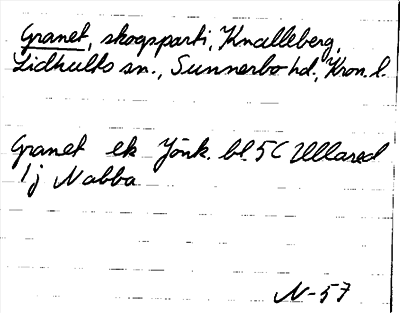 Granet, skogsparti, Knalleberg,
Lidhults sn., Sunnerbo hd., Kron. l.
Granet ek Jönk. bl. 5C Ullared
1j Nabba
N-57